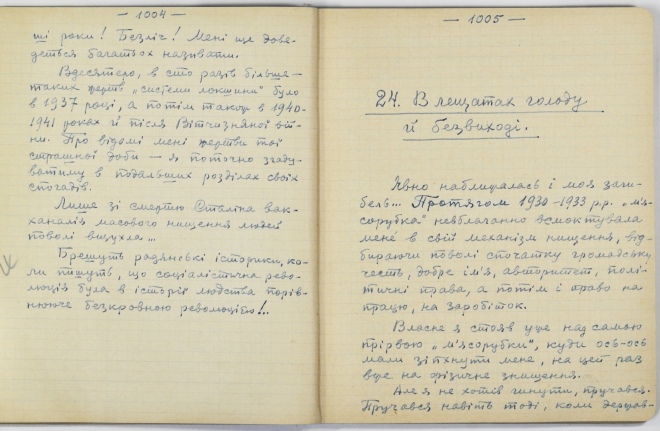 — 1004 —
ші роки! Безліч! Мені ще дове-
деться багатьох називати.
Вдесятеро, в сто разів більше
таких жертв „системи локшини" було
в 1937 році, а потім також в 1940-
1941 роках й після Вітчизняної вій-
ни. Про відомі мені жертви тої
страшної доби — я поточно згаду-
ватиму в подальших розділах своїх
спогадів.
Лише зі смертю Сталіна вак-
ханалія масового нищення людей
поволі вщухла...
Брешуть радянські історики, ко-
ли пишуть, що соціалістична рево-
люція була в історії людства порів-
нююче безкровною революцією!..
— 1005 —
24. В лещатах голоду
й безвиході.
Явно наближалась і моя заги-
бель... Протягом 1930-1933 р.р. „м'я-
сорубка" невблаганно всмоктувала
мене в свій механізм нищення, від-
бираючи поволі спочатку громадську
честь, добре ім'я, авторитет, полі-
тичні права, а потім і право на
працю, на заробіток.
Власне я стояв уже над самою
прірвою „м'ясорубки", куди ось-ось
мали зіпхнути мене, на цей раз
вже на фізичне знищення.
Але я не хотів гинути, пручався.
Пручався навіть тоді, коли держав-